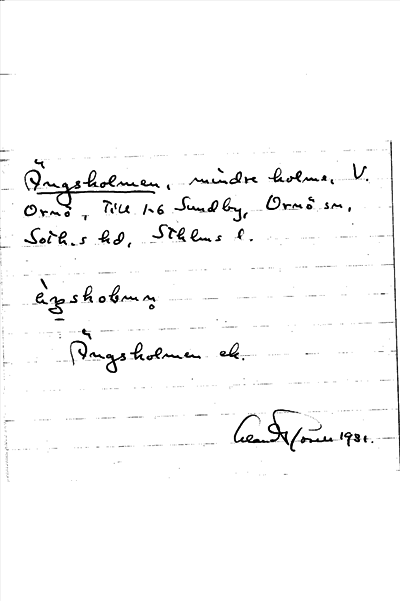 Ängsholmen, mindre holme, V.
Ornö, Till 1-6 Sundby, Ornö sn,
Soth.s hd, Sthlms l.
Ängsholmen ek.
1931.